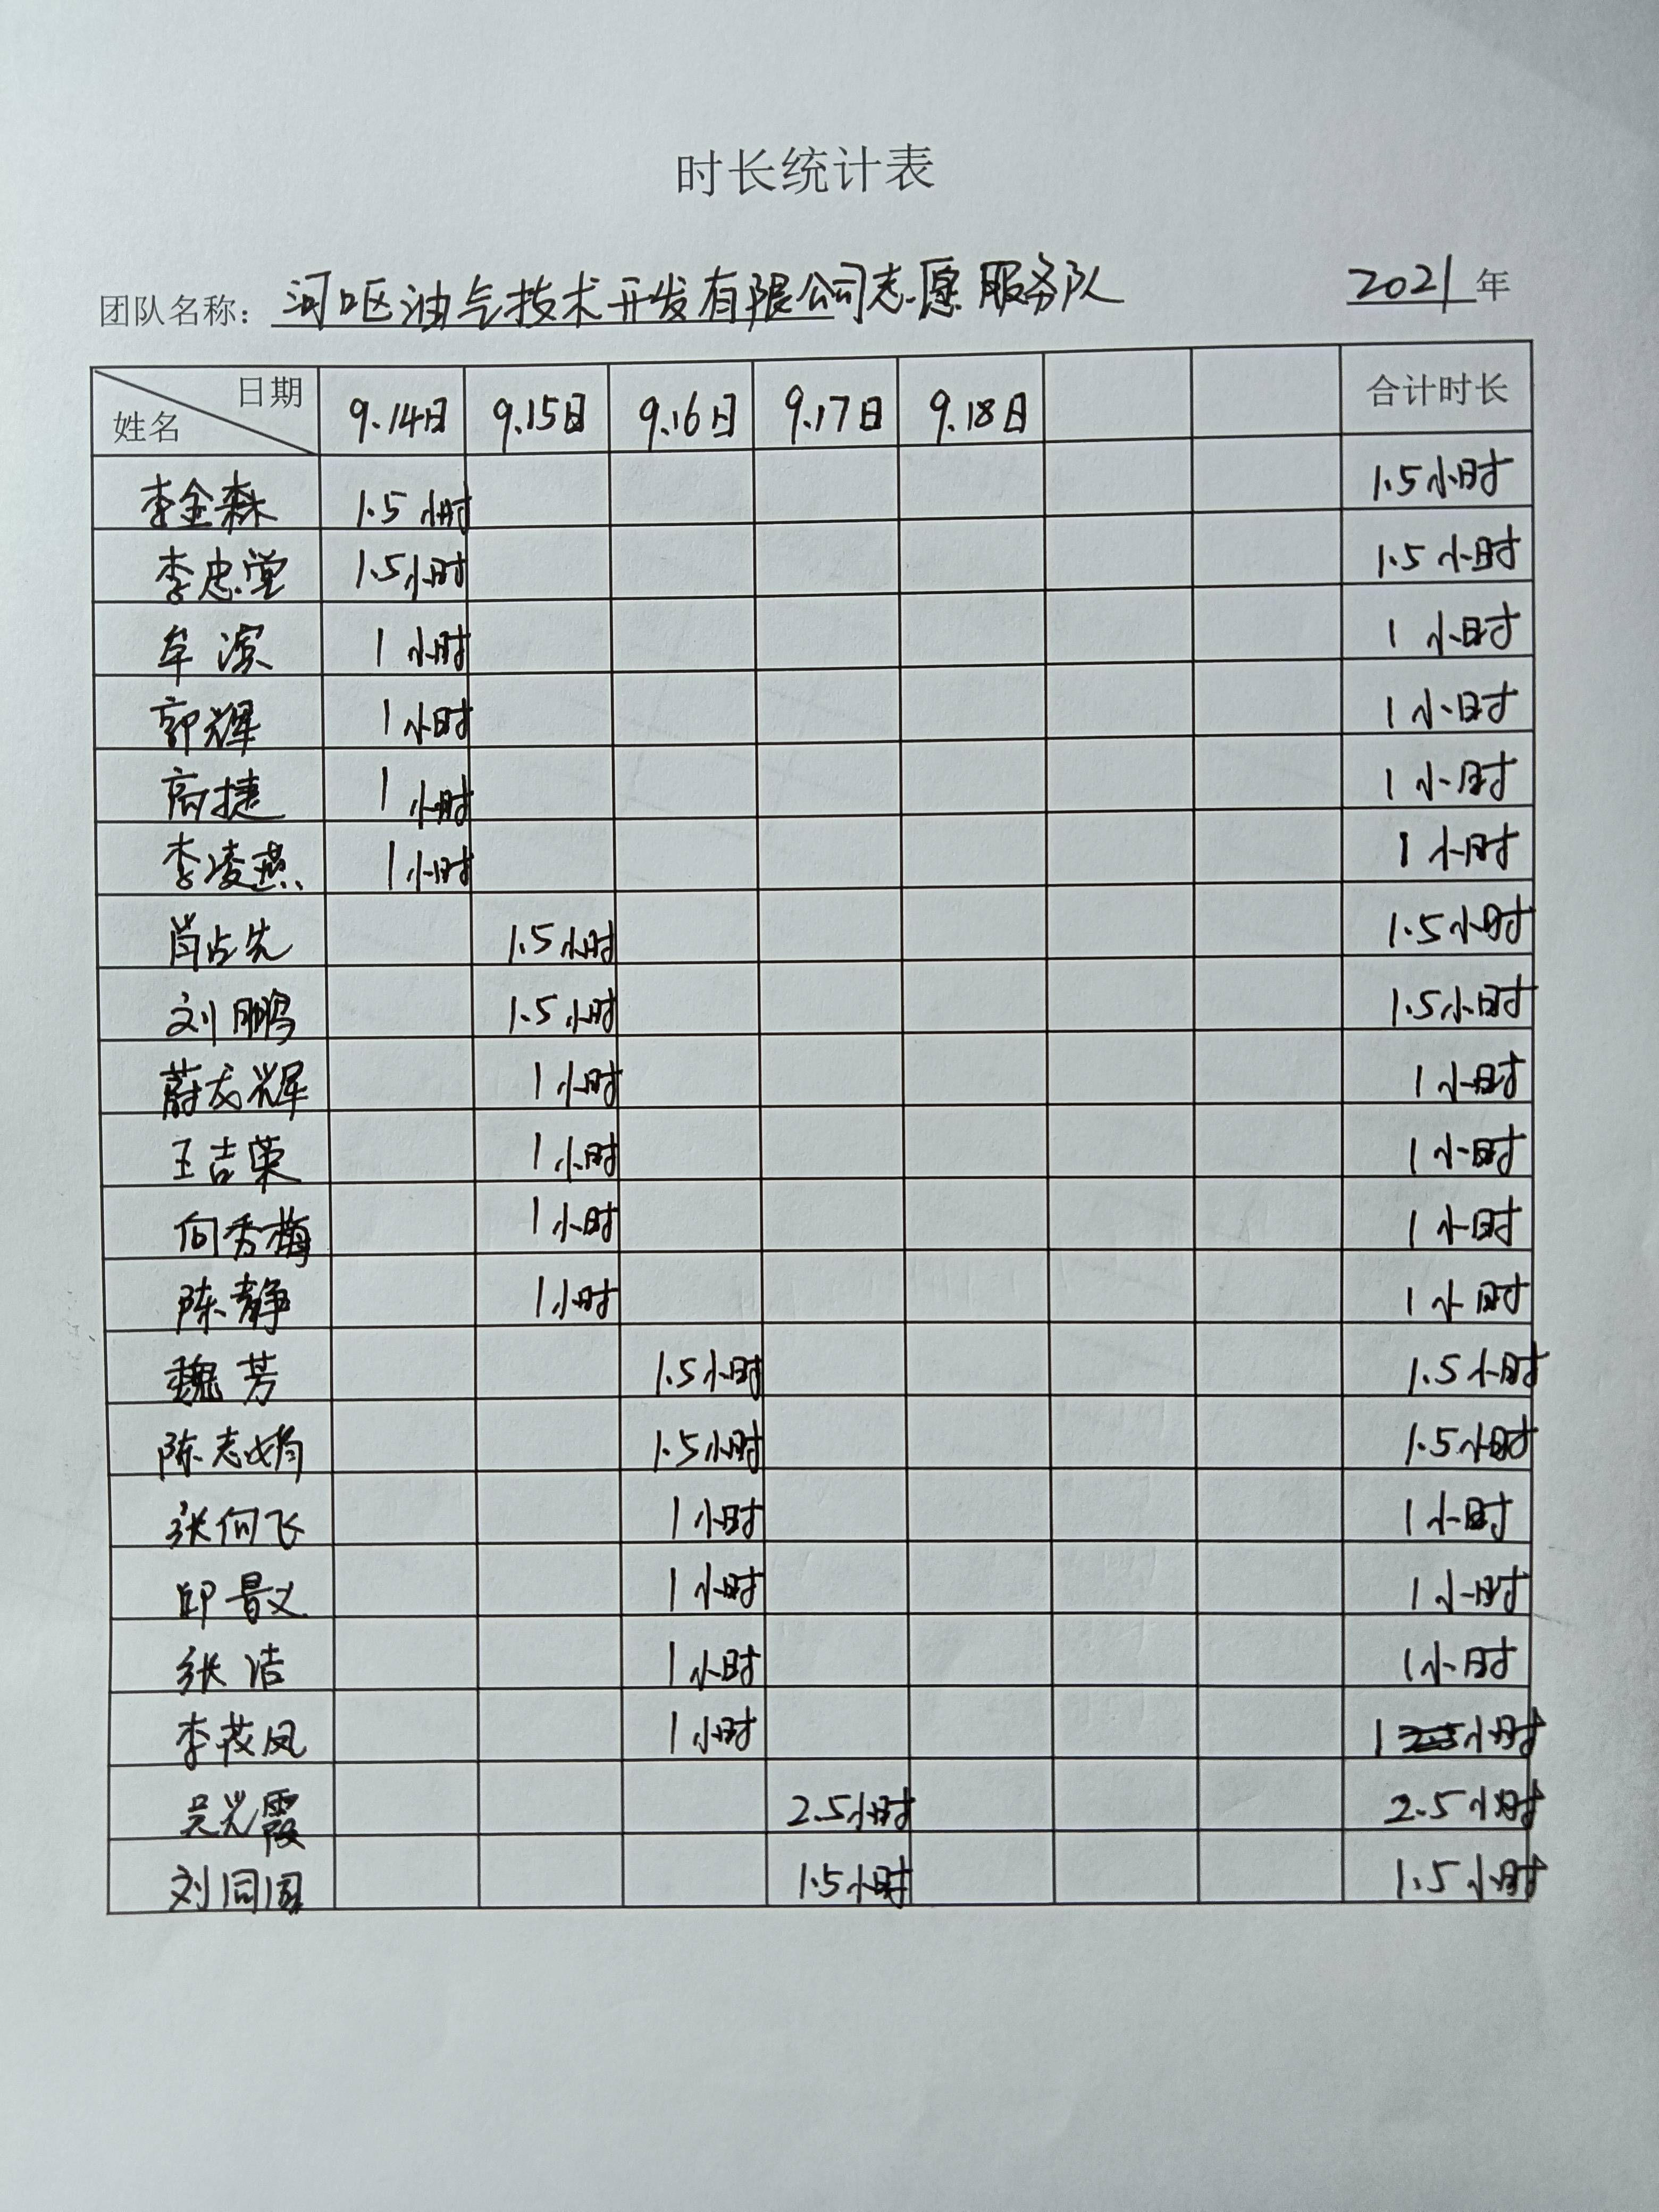 时长统计表
团队名称：河呕油气技术开发有限公司志愿服务队 2021年
日期 姓名 9.14日 9.15日 9.16日 9.17日 9.18日 合计时长
李金森 1.5小时 1.5小时
李忠堂 1.5小时 1.5小时
牟滨 1小时 1小时
郭辉 1小时 1小时
高捷 1小时 1小时
李凌燕 1小时 1小时
肖占先 1.5小时 1.5小时
刘鹏 1.5小时 1.5小时
蔚友辉 1小时 1小时
王吉荣 1小时 1小时
向秀梅 1小时 1小时
陈静 1小时 1小时
魏芳 1.5小时 1.5小时
陈志娟 1.5小时 1.5小时
张向飞 1小时 1小时
邱景义 1小时 1小时
张洁 1小时 1小时
李茂凤 1小时 1小时
吴光霞 2.5小时 2.5小时
刘同国 1.5小时 1.5小时